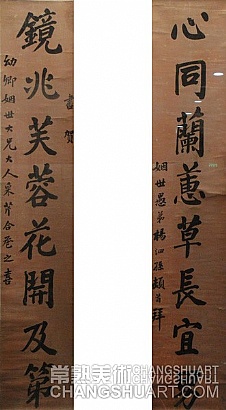 心同蘭蕙草長宜男
姻世愚弟楊泗孫頓首拜
書賀
鏡兆芙蓉花開及第
幼卿姻世大兄大人采芹合巹之喜
常熟美術 CHANGSHUART.COM